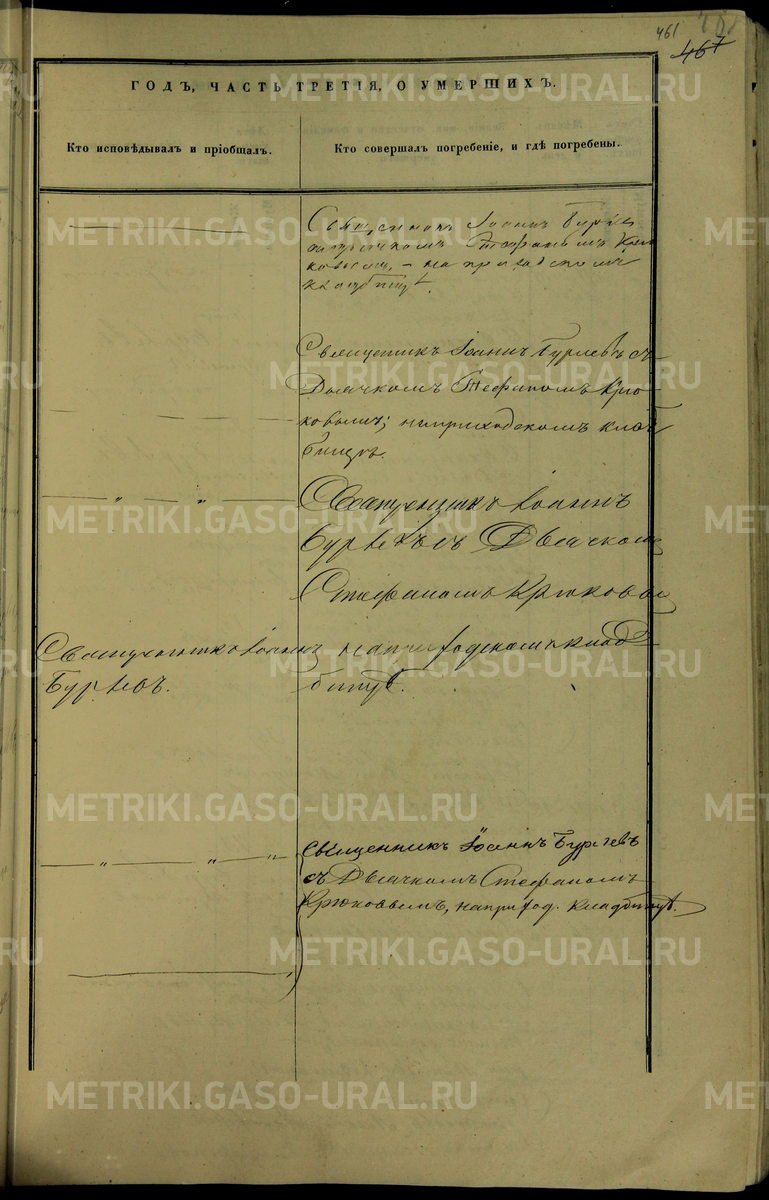 461
467
ГОДЪ, ЧАСТЬ ТРЕТІЯ, О УМЕРШИХЪ.
Кто исповѣдывалъ и пріобщалъ.
Кто совершалъ погребеніе, и гдѣ погребены.
Священникъ Іоаннъ
Стефаномъ Крю
ковымъ, – на приходскомъ
Священникъ Іоаннъ Бурчевъ съ
Дьячкомъ Стефаномъ Крю
ковымъ; на приходскомъ клад
бищѣ.
Священникъ Іоаннъ
Бурчевъ съ Дьячкомъ
Стефаномъ Крюковым
на приходскомъ клад
бищѣ.
Священникъ Іоаннъ
Бурчевъ.
Священникъ Іоаннъ Бурчевъ
съ Дьячкомъ Стефаномъ
Крюковымъ, на приход. кладбищѣ.
METRIKI.GASO-URAL.RU